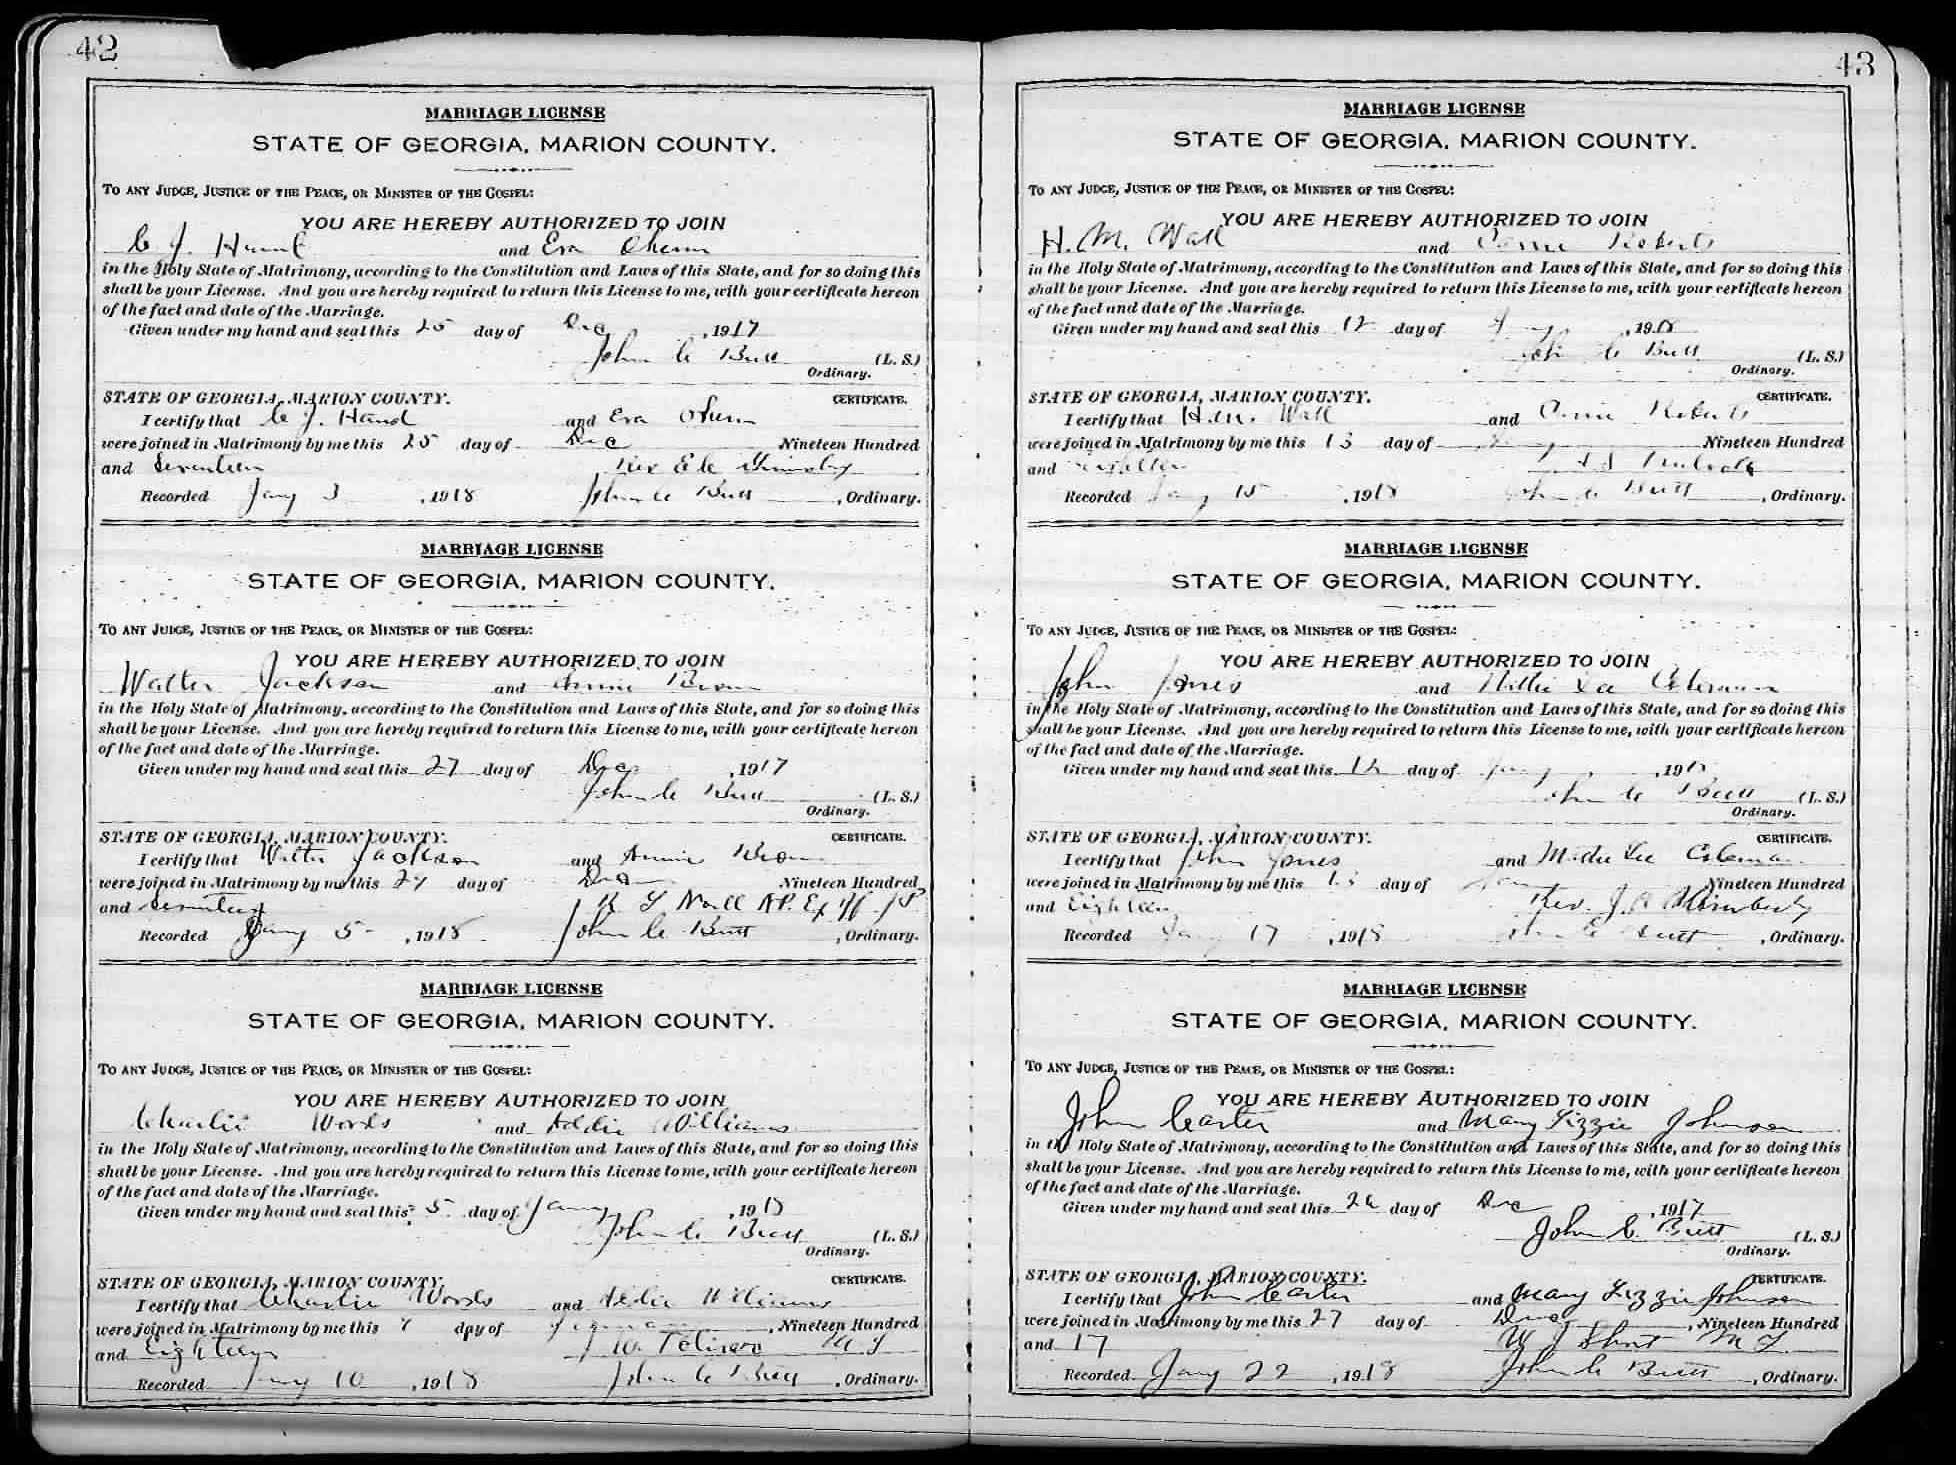 42
MARRIAGE LICENSE
STATE OF GEORGIA, MARION COUNTY.
TO ANY JUDGE, JUSTICE OF THE PEACE, OR MINISTER OF THE GOSPEL:
YOU ARE HEREBY AUTHORIZED TO JOIN
C. J. and Eva
in the Holy State of Matrimony, according to the Constitution and Laws of this State, and for so doing this
shall be your License. And you are hereby required to return this License to me, with your certificate hereon
of the fact and date of the Marriage.
Given under my hand and seal this 25 day of Dec, 1917
John C Butt (L. S.)
Ordinary.
STATE OF GEORGIA, MARION COUNTY. CERTIFICATE.
I certify that C. J. Hand and Eva
were joined in Matrimony by me this 25 day of Dec Nineteen Hundred
and Seventeen Rev
Recorded Jany 3, 1918 John C Butt, Ordinary.
MARRIAGE LICENSE
STATE OF GEORGIA, MARION COUNTY.
TO ANY JUDGE, JUSTICE OF THE PEACE, OR MINISTER OF THE GOSPEL:
YOU ARE HEREBY AUTHORIZED TO JOIN
Walter Jackson and Annie Brown
in the Holy State of Matrimony, according to the Constitution and Laws of this State, and for so doing this
shall be your License. And you are hereby required to return this License to me, with your certificate hereon
of the fact and date of the Marriage.
Given under my hand and seal this 27 day of Dec, 1917
John C Butt (L. S.)
Ordinary.
STATE OF GEORGIA, MARION COUNTY. CERTIFICATE.
I certify that Walter Jackson and Annie Brown
were joined in Matrimony by me this 27 day of Dec Nineteen Hundred
and Seventeen
Recorded Jany 5, 1918 John C Butt, Ordinary.
MARRIAGE LICENSE
STATE OF GEORGIA, MARION COUNTY.
TO ANY JUDGE, JUSTICE OF THE PEACE, OR MINISTER OF THE GOSPEL:
YOU ARE HEREBY AUTHORIZED TO JOIN
Charlie Woods and Addie Williams
in the Holy State of Matrimony, according to the Constitution and Laws of this State, and for so doing this
shall be your License. And you are hereby required to return this License to me, with your certificate hereon
of the fact and date of the Marriage.
Given under my hand and seal this 5 day of Jany, 1918
John C Butt (L. S.)
Ordinary.
STATE OF GEORGIA, MARION COUNTY. CERTIFICATE.
I certify that Charlie Woods and Addie Williams
were joined in Matrimony by me this day of, Nineteen Hundred
and Eighteen
Recorded Jany 10, 1918 John C Butt, Ordinary.
43
MARRIAGE LICENSE
STATE OF GEORGIA, MARION COUNTY.
TO ANY JUDGE, JUSTICE OF THE PEACE, OR MINISTER OF THE GOSPEL:
YOU ARE HEREBY AUTHORIZED TO JOIN
H. M. Wall and Roberts
in the Holy State of Matrimony, according to the Constitution and Laws of this State, and for so doing this
shall be your License. And you are hereby required to return this License to me, with your certificate hereon
of the fact and date of the Marriage.
Given under my hand and seal this 12 day of, 1918
John C Butt (L. S.)
Ordinary.
STATE OF GEORGIA, MARION COUNTY. CERTIFICATE.
I certify that H. M. Wall and Roberts
were joined in Matrimony by me this 13 day of Nineteen Hundred
and
Recorded Jany 15, 1918 John C Butt, Ordinary.
MARRIAGE LICENSE
STATE OF GEORGIA, MARION COUNTY.
TO ANY JUDGE, JUSTICE OF THE PEACE, OR MINISTER OF THE GOSPEL:
YOU ARE HEREBY AUTHORIZED TO JOIN
John Jones and Lee Coleman
in the Holy State of Matrimony, according to the Constitution and Laws of this State, and for so doing this
shall be your License. And you are hereby required to return this License to me, with your certificate hereon
of the fact and date of the Marriage.
Given under my hand and seal this 12 day of Jany, 191
John C Butt (L. S.)
Ordinary.
STATE OF GEORGIA, MARION COUNTY. CERTIFICATE.
I certify that John Jones and Lee Coleman
were joined in Matrimony by me this 13 day of Nineteen Hundred
and Eighteen Rev. J.
Recorded Jany 17, 1918 John C Butt, Ordinary.
MARRIAGE LICENSE
STATE OF GEORGIA, MARION COUNTY.
TO ANY JUDGE, JUSTICE OF THE PEACE, OR MINISTER OF THE GOSPEL:
YOU ARE HEREBY AUTHORIZED TO JOIN
John Carter and Mary Lizzie Johnson
in the Holy State of Matrimony, according to the Constitution and Laws of this State, and for so doing this
shall be your License. And you are hereby required to return this License to me, with your certificate hereon
of the fact and date of the Marriage.
Given under my hand and seal this 26 day of Dec, 1917
John C. Butt (L. S.)
Ordinary.
STATE OF GEORGIA, MARION COUNTY. CERTIFICATE.
I certify that John Carter and Mary Lizzie Johnson
were joined in Matrimony by me this 27 day of Dec, Nineteen Hundred
and 17 W J Short M G
Recorded Jany 22, 1918 John C Butt, Ordinary.